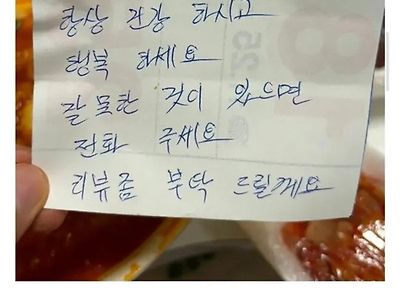 항상 건강 하시고
행복 하세요
잘 못한 것이 있으면
전화 주세요
리뷰좀 부탁 드릴께요